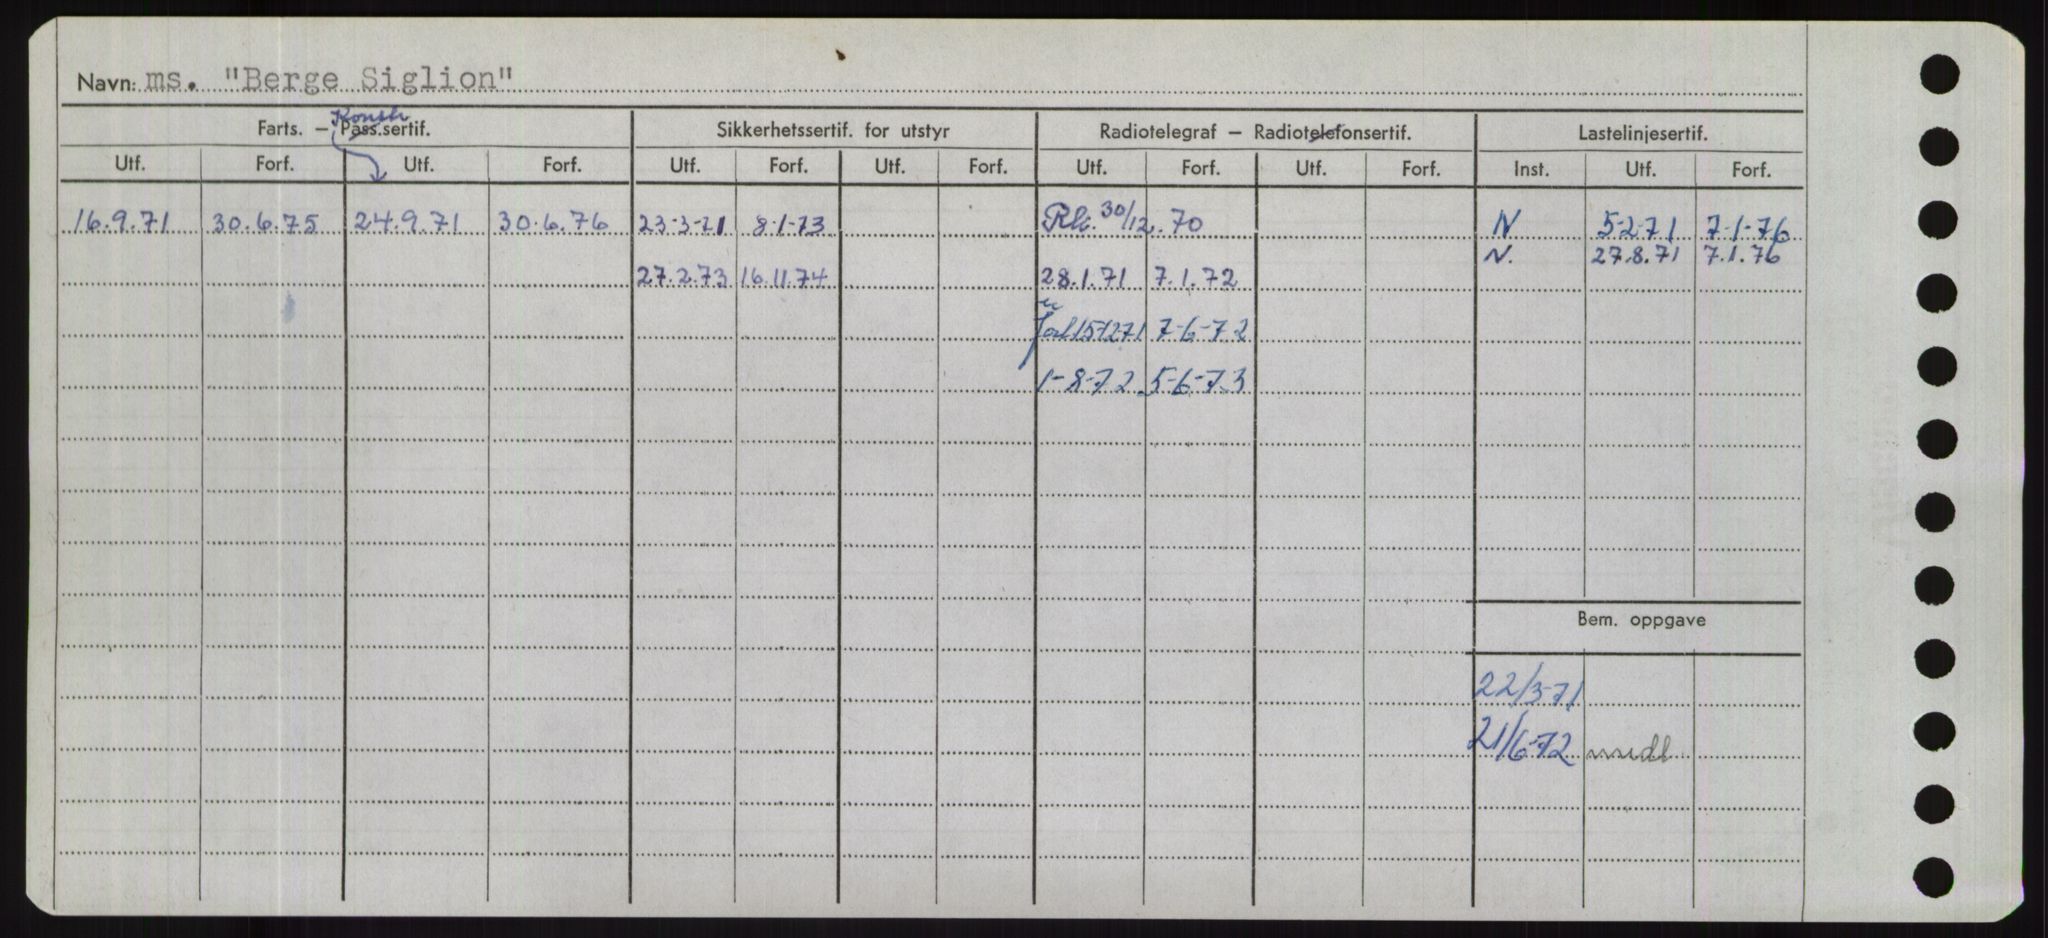 Navn: ms. "Berge Siglion"
Konstr
Farts. – Pass.sertif. Sikkerhetssertif. for utstyr Radiotelegraf – Radiotelefonsertif. Lastelinjesertif.
Utf. Forf. Utf. Forf. Utf. Forf. Utf. Forf. Utf. Forf. Utf. Forf. Inst. Utf. Forf.
16.9.71 30.6.75 24.9.71 30.6.76 23-3-71 8-1-73 30/12.70 N 5-2-71 7-1-76
N. 27.8.71 7.1.76
27.2.73 16.11.74 28.1.71 7.1.72
15-12-71 7-6-72
1-8-72 5-6-73
Bem. oppgave
22/3-71
21/6-72 midl